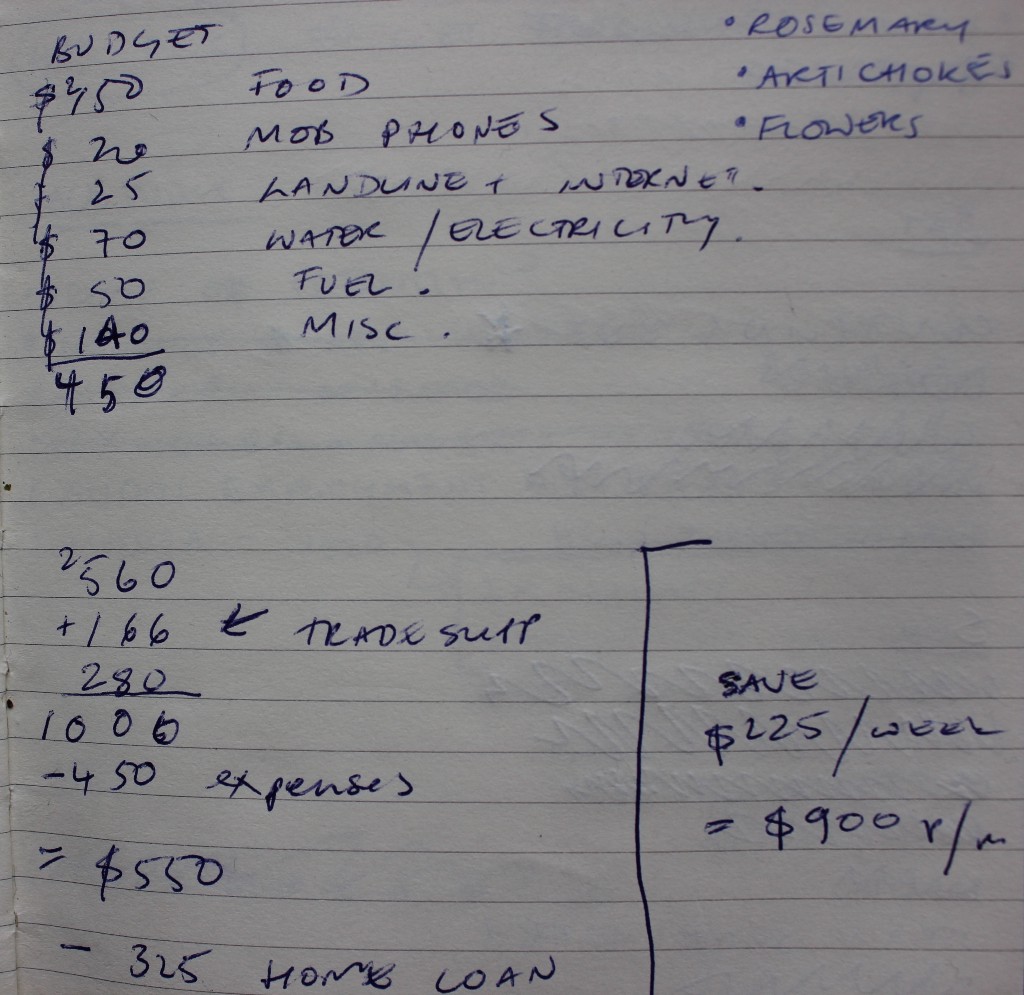 BUDGET
$150 FOOD
$ 20 MOB PHONES
$ 25 LANDLINE + INTERNET.
$ 70 WATER / ELECTRICITY.
$ 50 FUEL.
$ 140 MISC.
450
• ROSEMARY
• ARTICHOKES
• FLOWERS
2
560
+166 ← TRADE SUPP
280
1006
-450 expenses
= $550
- 325 HOME LOAN
SAVE
$225 / WEEK
= $900 P/m